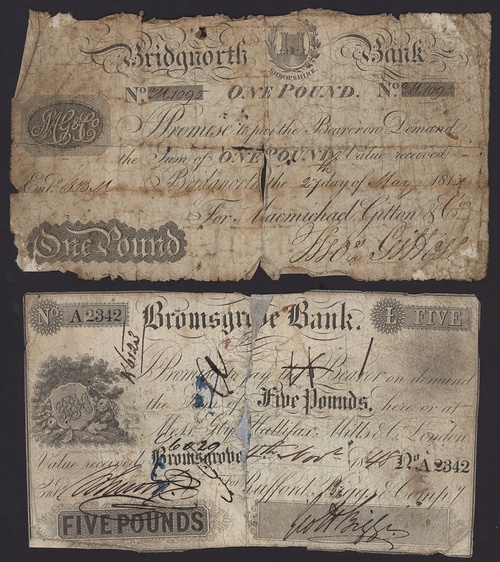 Bridgnorth Bank
SHROPSHIRE
No. ONE POUND. No.
I Promise to pay the Bearer on Demand
the Sum of ONE POUND Value received
Bridgnorth the 27 day of May 181
For Macmichael, Gitton & Co.
One Pound
No. A 2342 Bromsgrove Bank. £ FIVE
I Promise to pay Bearer on demand
the of Five Pounds, here or at
Messrs. Glyn Hallifax, Mills & Co. London
Value received Bromsgrove Novr. 1848 No. A 2342
For Rufford, & Compy.
FIVE POUNDS